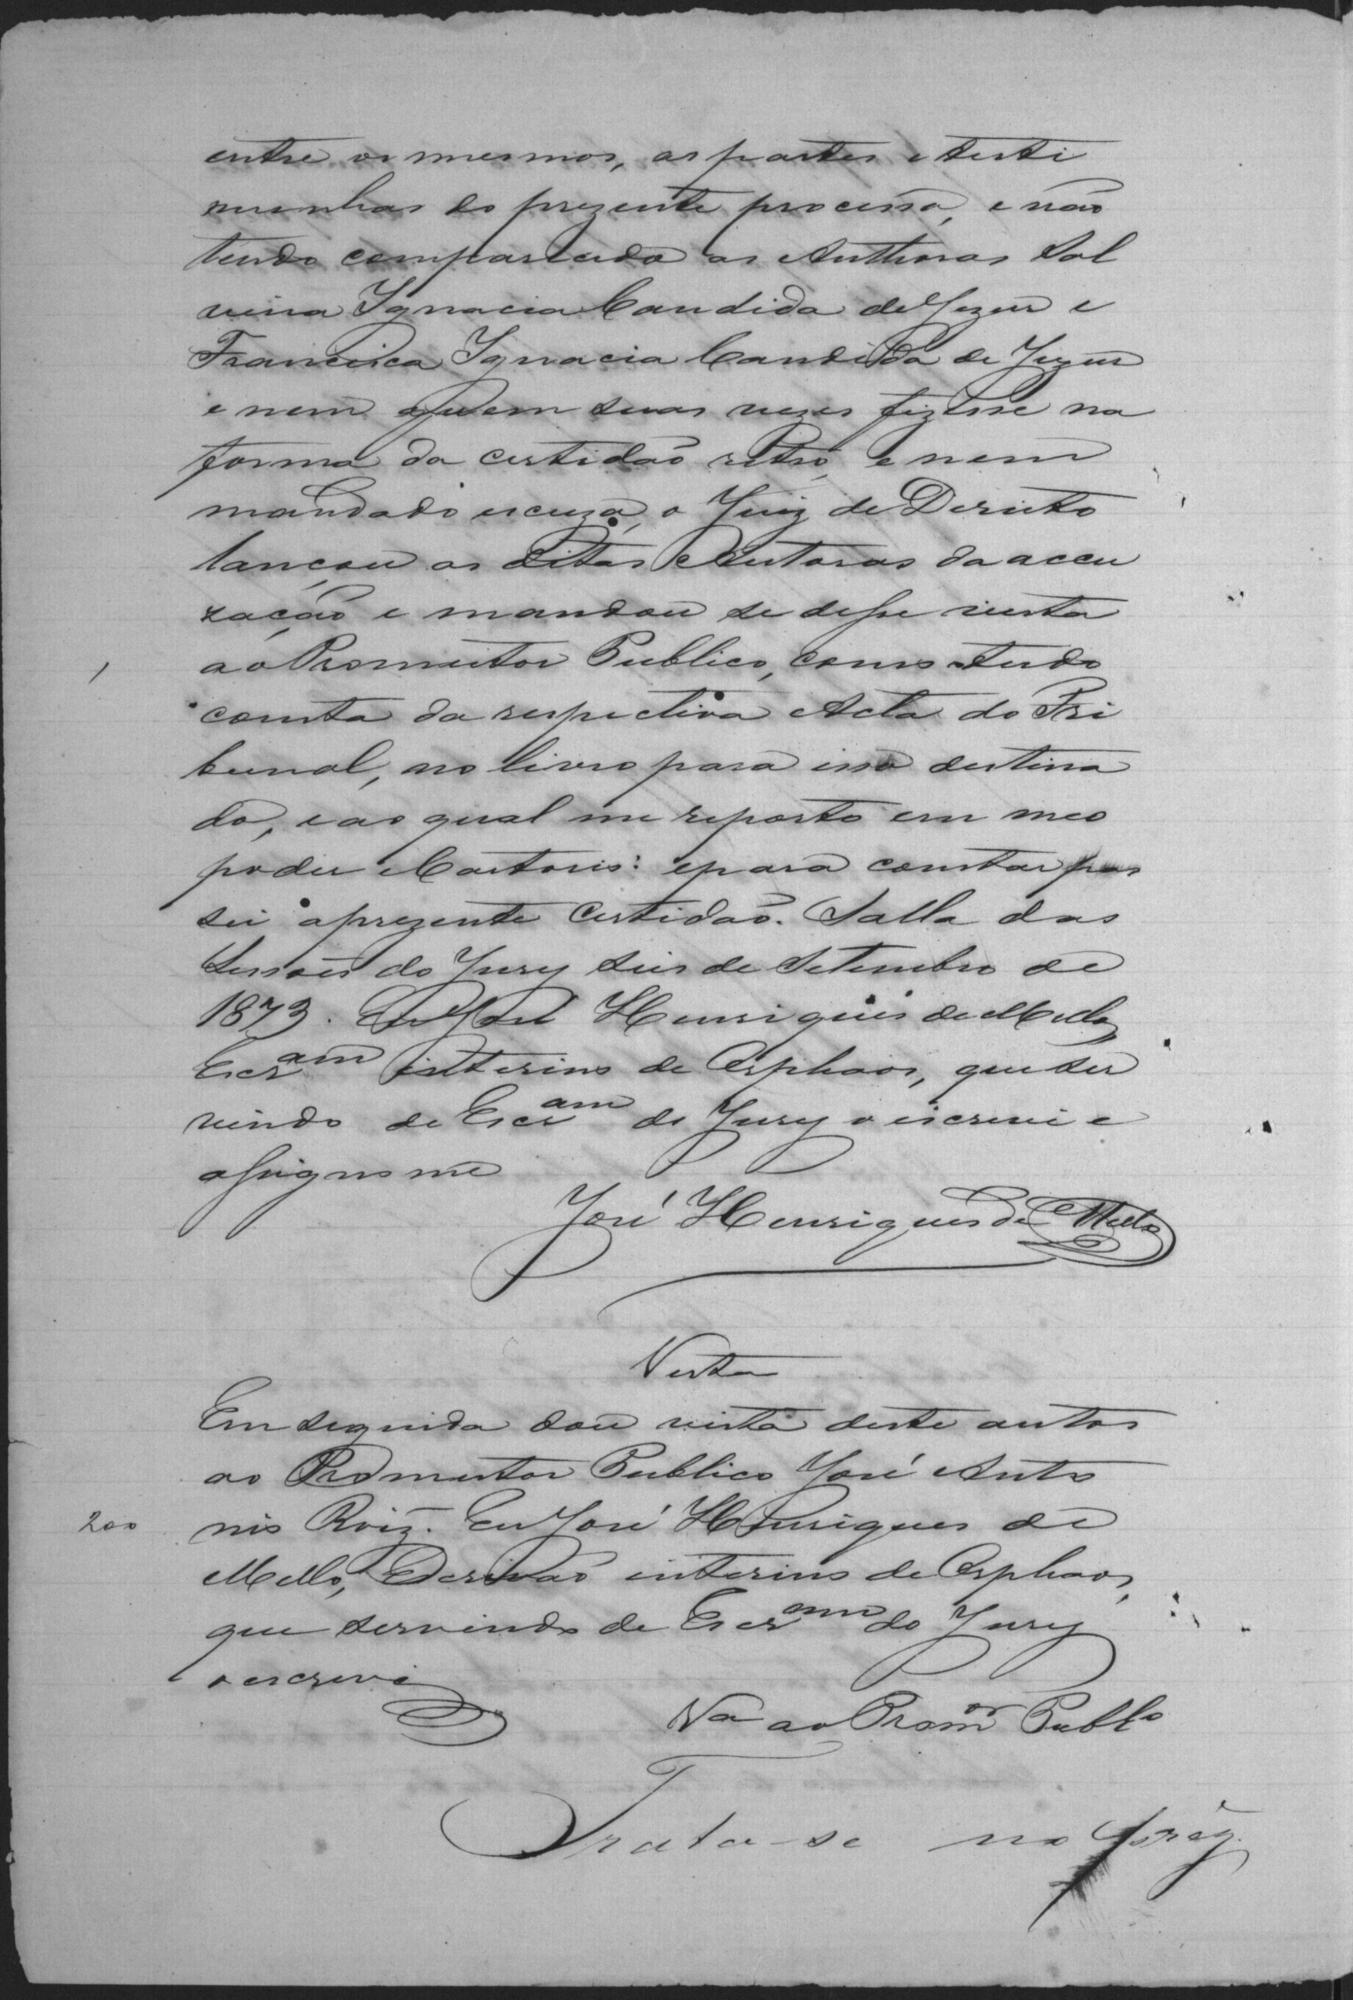 entre os mesmos, as partes e testi
munhas do prezente processo, e não
tendo comparecido as Authoras Sal
vina Ignacia Candida de Jezus e
Francisca Ignacia Candida de Jezus
e nem quem suas vezes fizesse na
forma da certidão retro, e nem
mandado escuza, o Juiz de Direito
lançou as ditas Autoras da accu
zação e mandou se desse vista
ao Promoutor Publico, como tudo
consta da respectiva Acta do Tri
bunal, no livro para isso destina
do, e ao qual me reporto em meo
poder e Cartorio: e para constar pas
sei a prezente certidão. Salla das
Sessões do Jury seis de Setembro de
1873. Eu José Henriques de Mello
Escram interino de Orphaos, que ser
vindo de Escram do Jury o escrevi e
assigno me
José Henriques de Mello
Vista
Em seguida dou vista deste autos
ao Promoutor Publico José Anto
200 nio Roiz. Eu José Henriques de
Mello, Escrivão interino de Orphaos,
que servindo de Escram do Jury
o escrevi
Va ao Promor Publo
Trata-se no